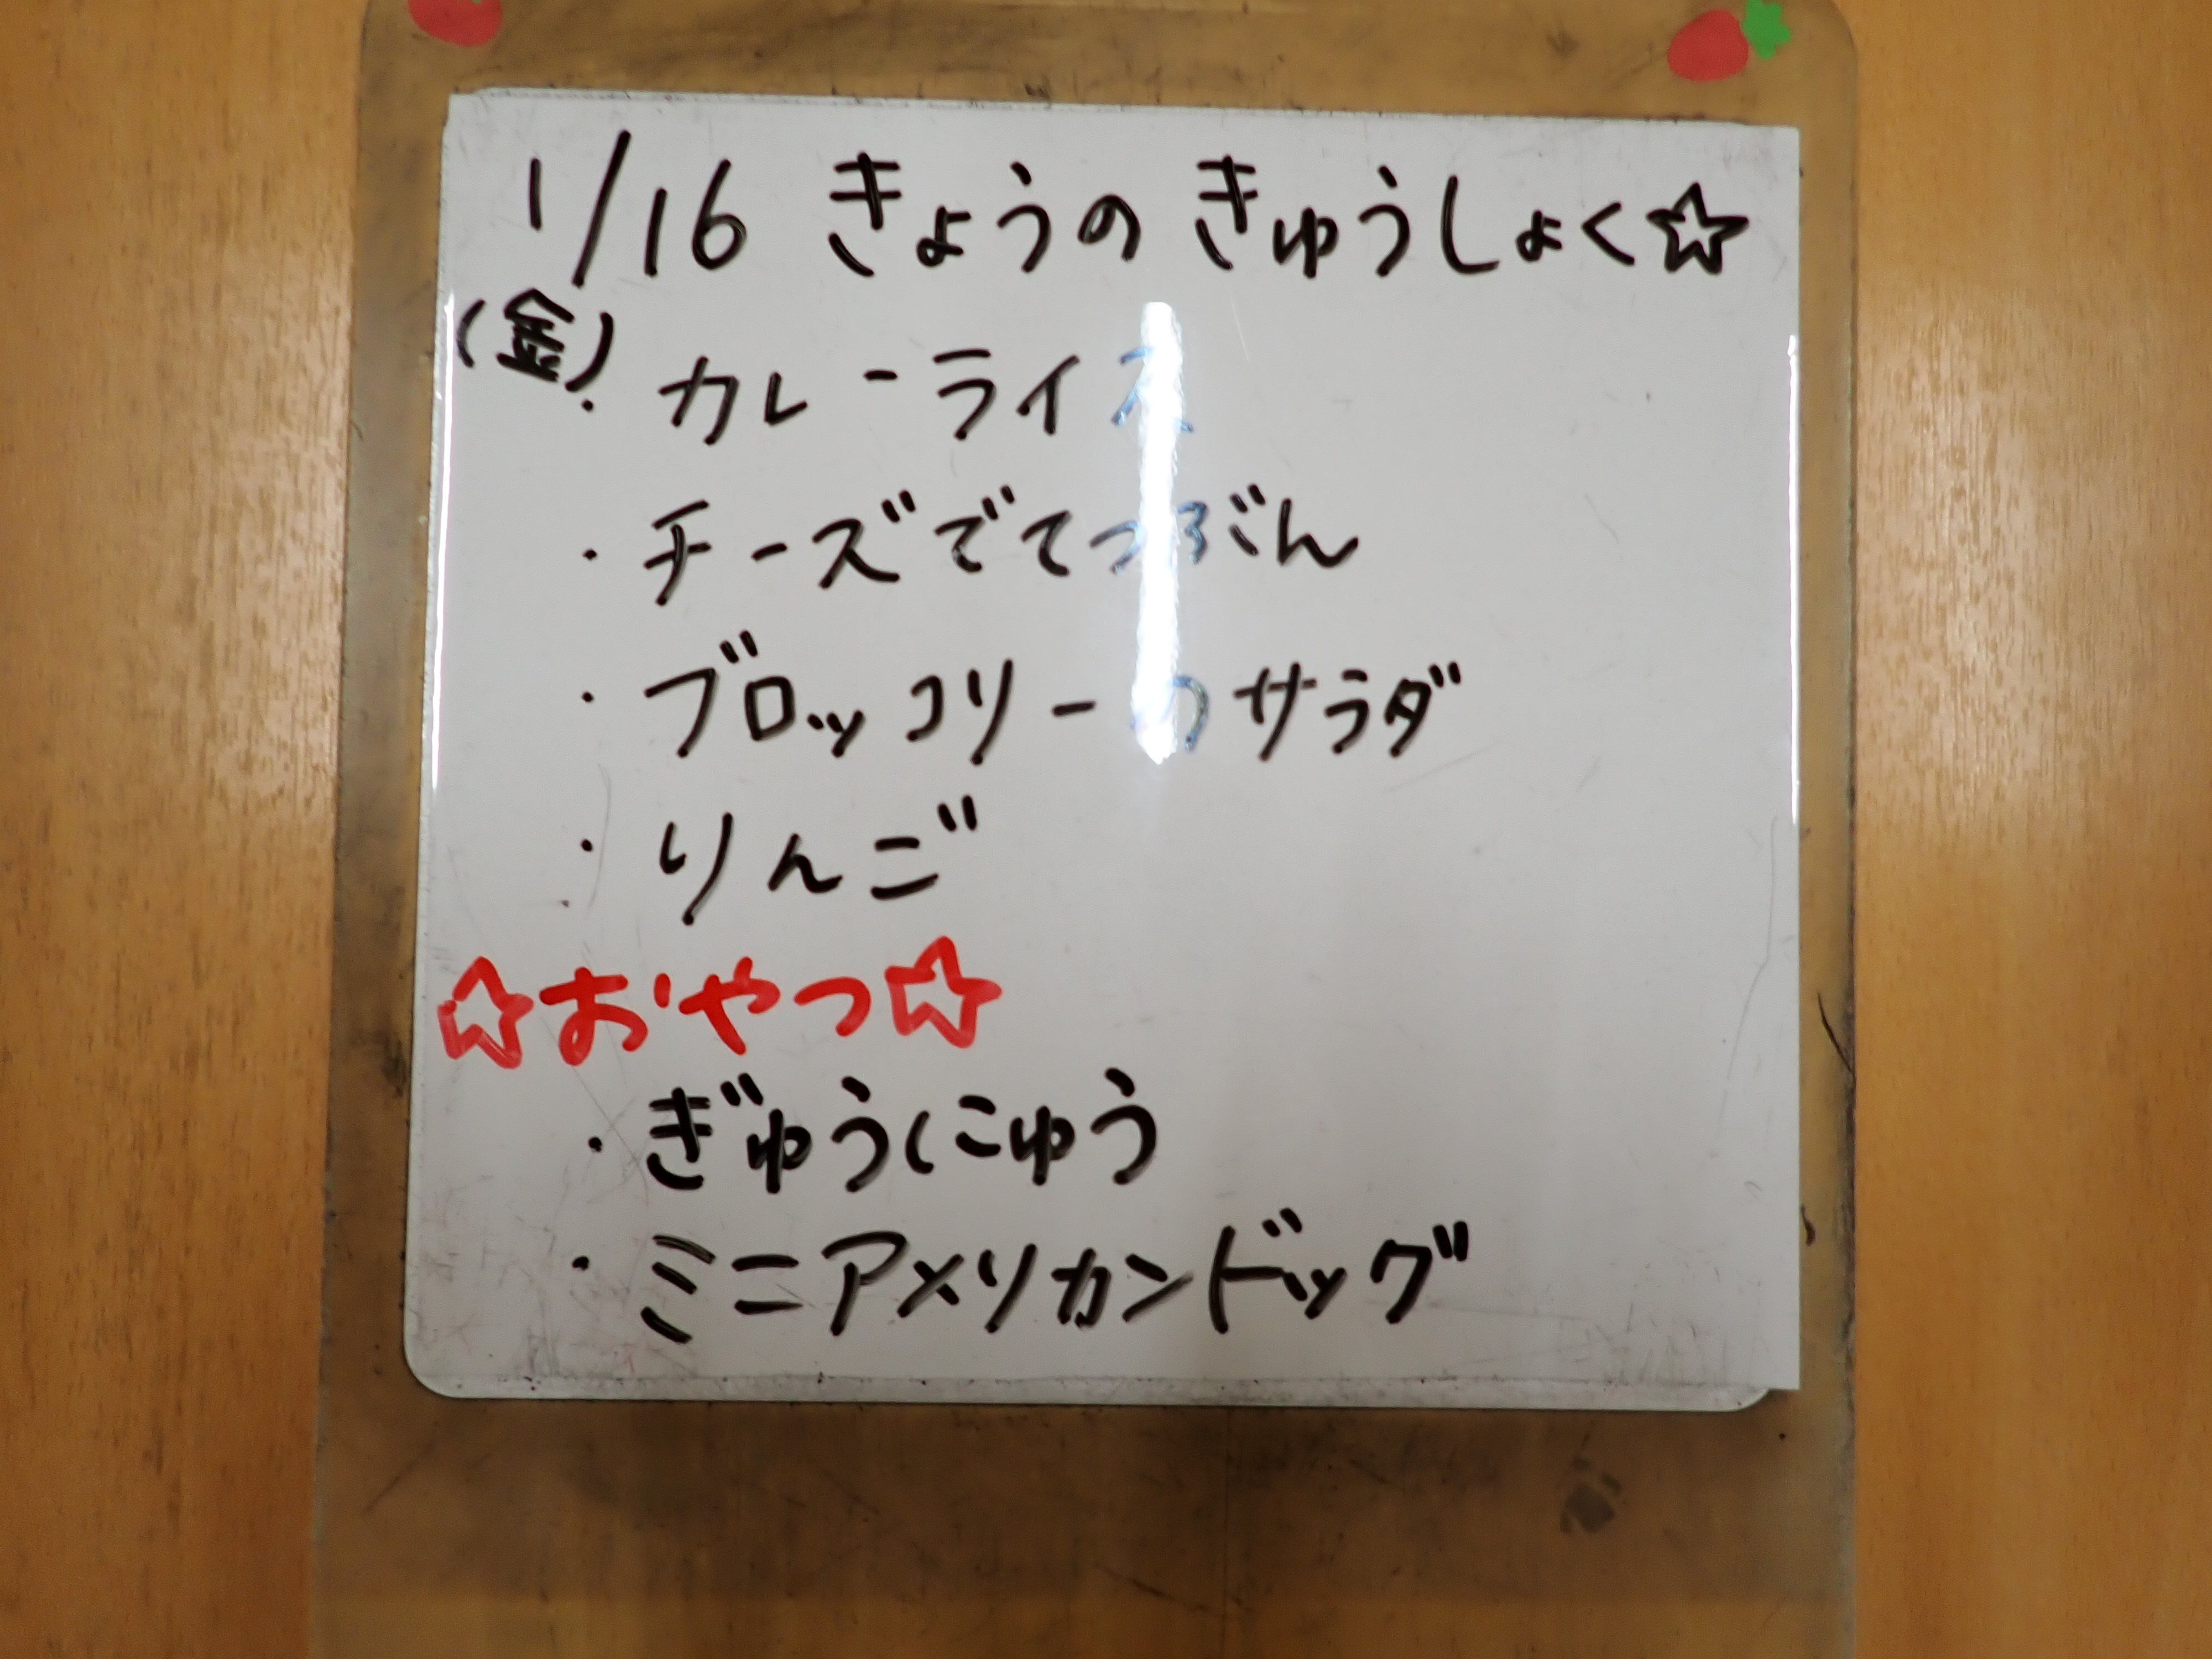 1/16 きょうの きゅうしょく☆
(金)
・カレーライス
・チーズでてつぶん
・ブロッコリーのサラダ
・りんご
☆おやつ☆
・ぎゅうにゅう
・ミニアメリカンドッグ